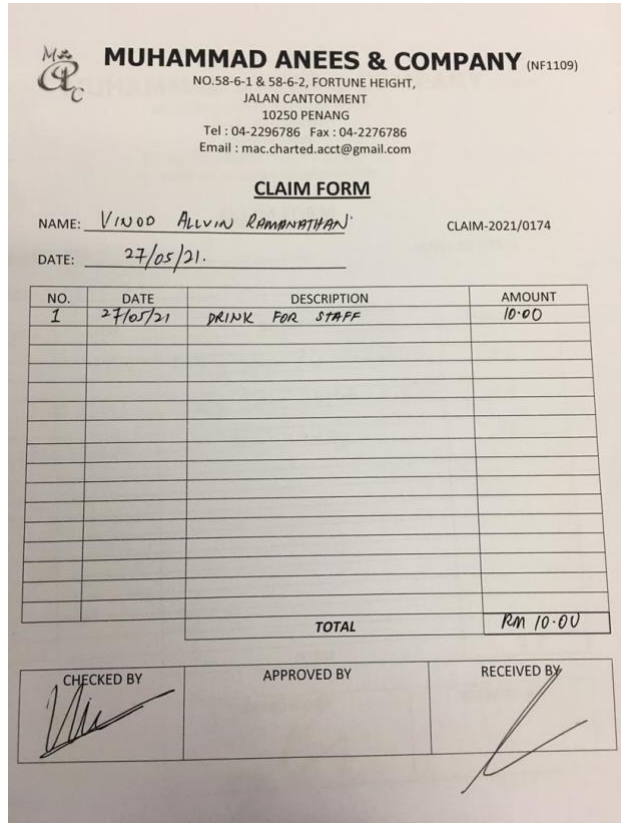 MUHAMMAD ANEES & COMPANY (NF1109)
NO.58-6-1 & 58-6-2, FORTUNE HEIGHT,
JALAN CANTONMENT
10250 PENANG
Tel : 04-2296786 Fax : 04-2276786
Email : mac.charted.acct@gmail.com
CLAIM FORM
NAME: VINOD ALLVIN RAMANATHAN CLAIM-2021/0174
DATE: 27/05/21.
NO. DATE DESCRIPTION AMOUNT
1 27/05/21 DRINK FOR STAFF 10.00
TOTAL RM 10.00
CHECKED BY APPROVED BY RECEIVED BY